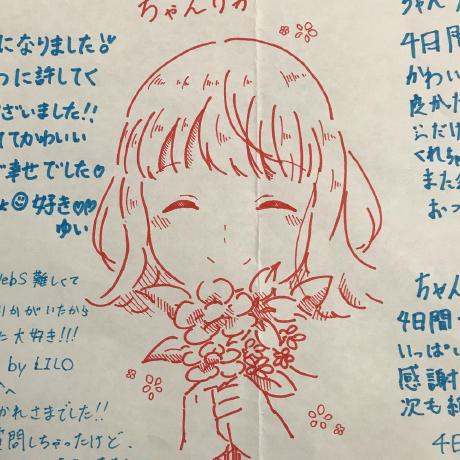 ちゃんりか
になりました
つに許してく
ございました!!
ててかわいい
で幸せでした
好き
ゆい
WebS 難しくて
りかがいたから
た 大好き!!!
by LILO
かれさまでした!!
質問しちゃったけど、
ちゃん
4日間
かわい
良かた
くれちゃ
また
おっ
ちゃん
4日間
いっぱい
感謝
次も
4日